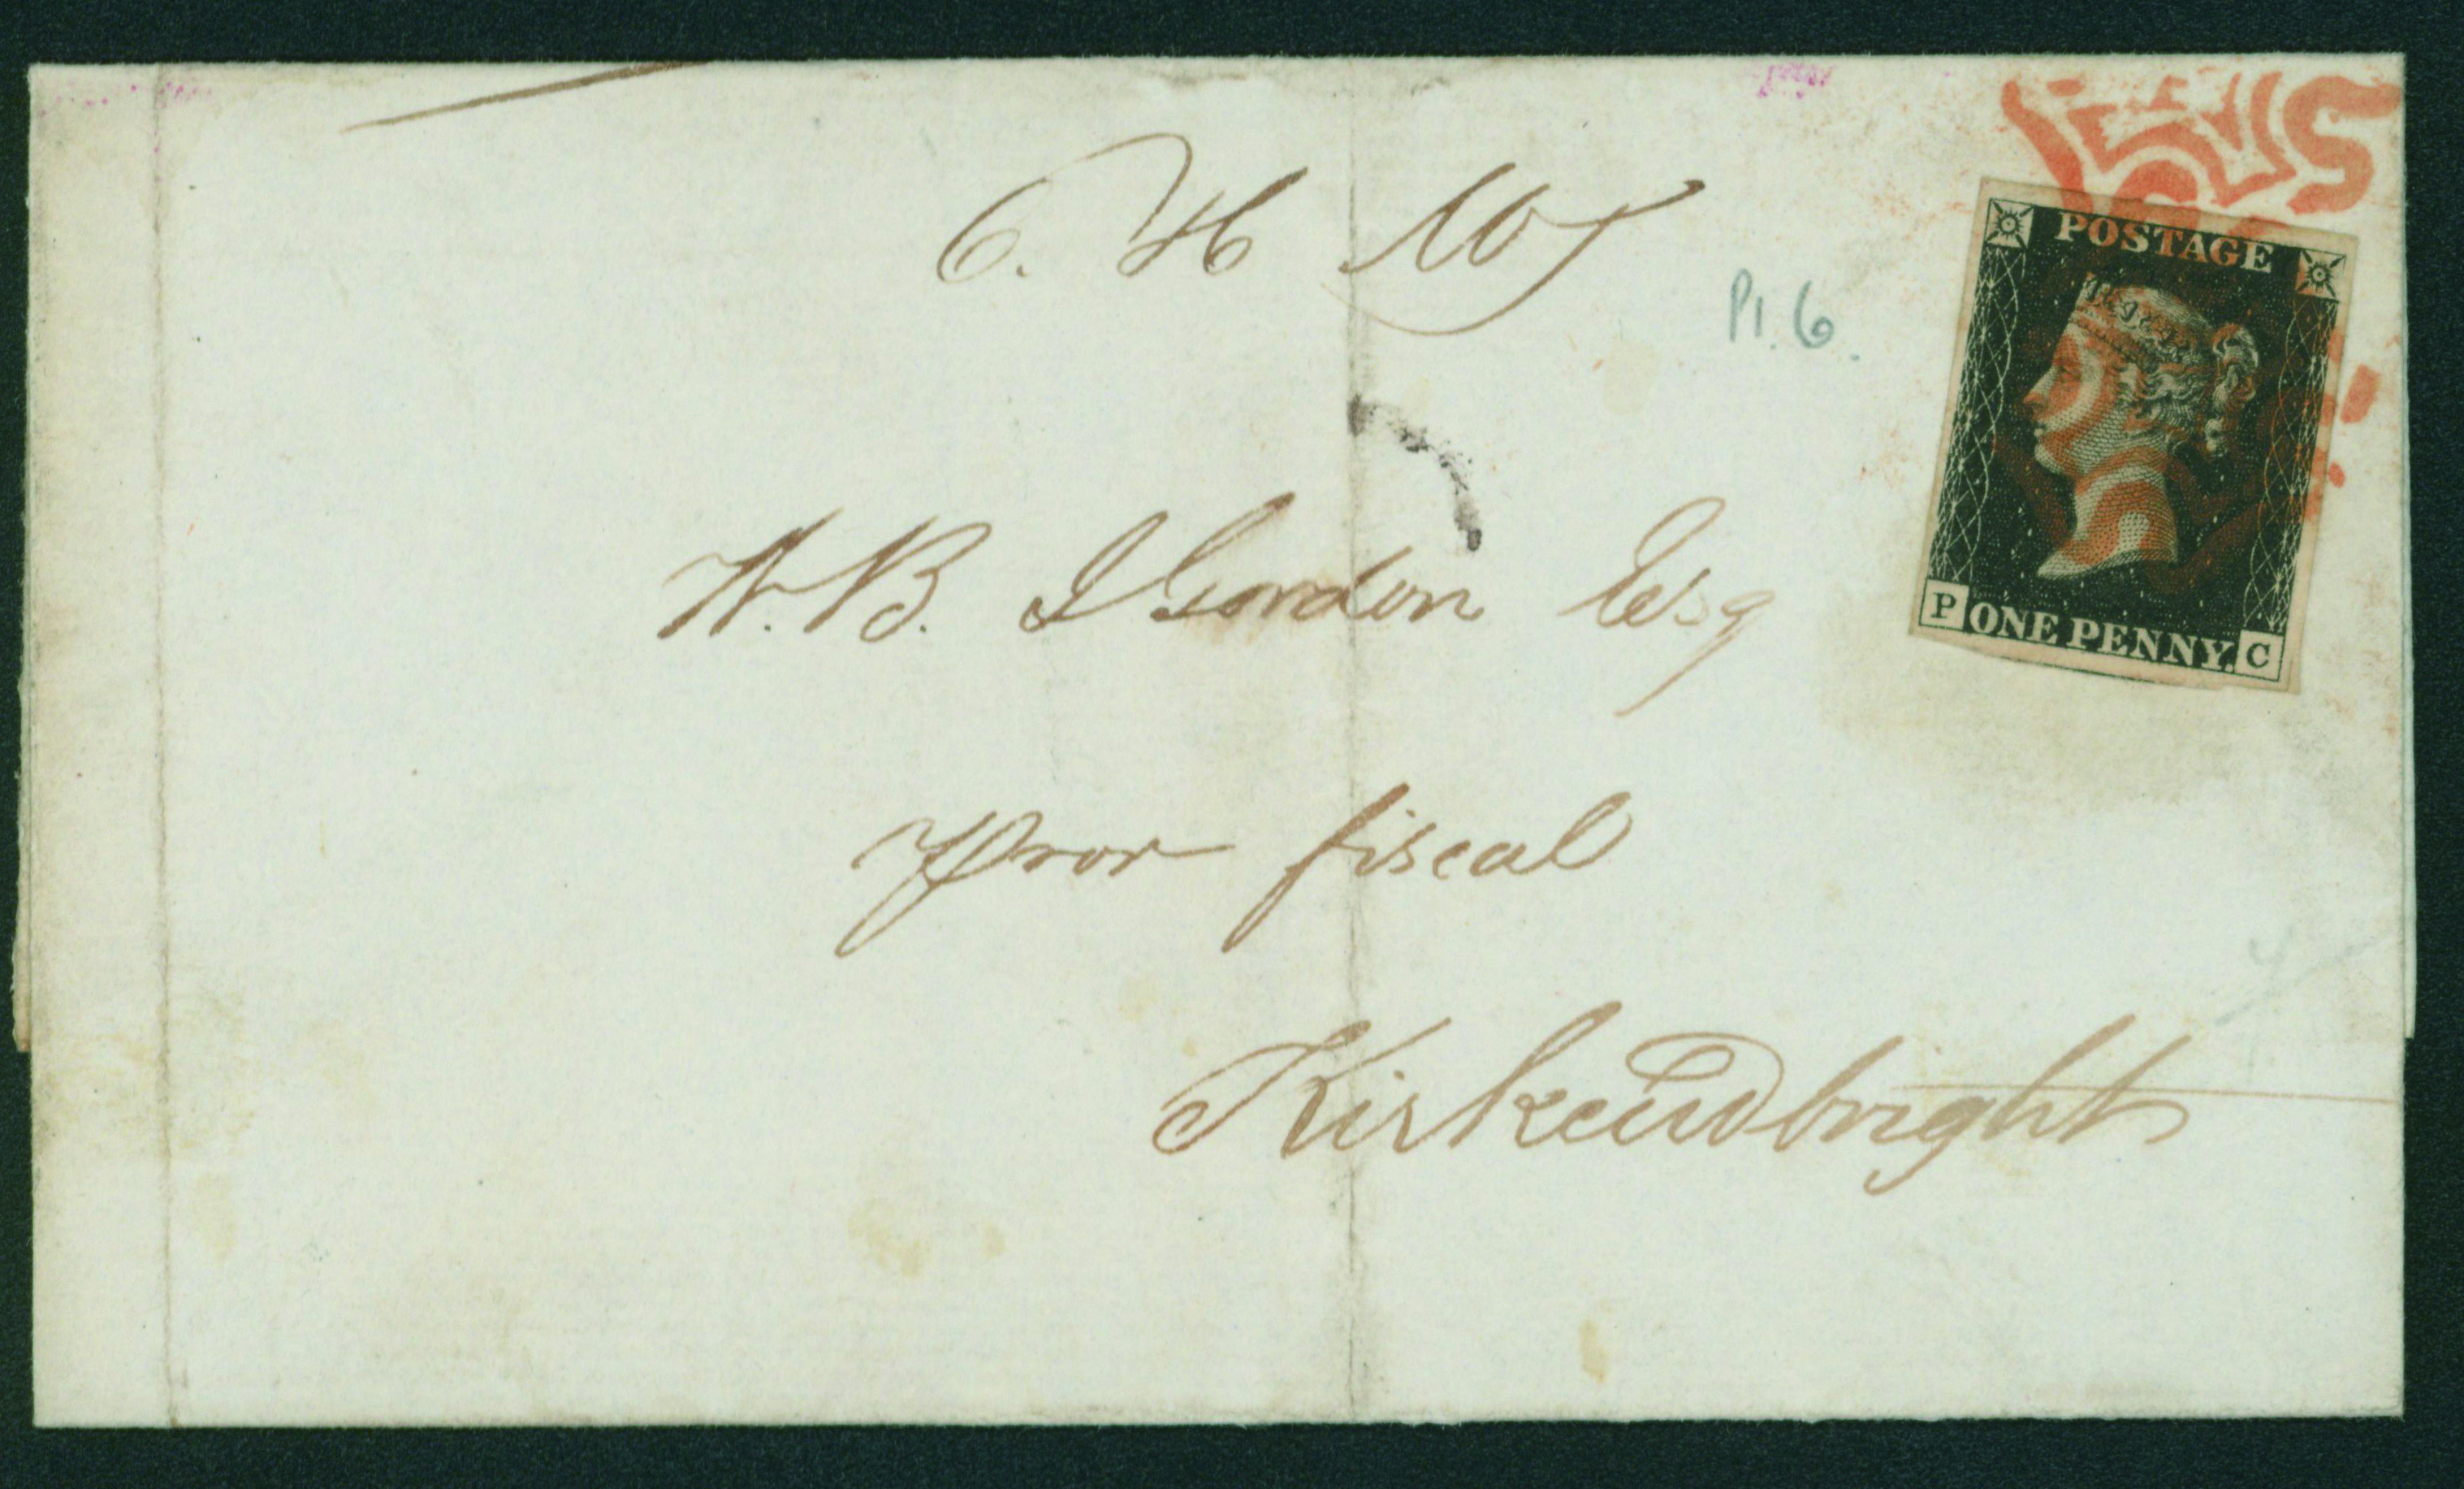 POSTAGE
Pl. 6.
W. B. Gordon Esq
P ONE PENNY. C
fiscal
Kirkcudbright